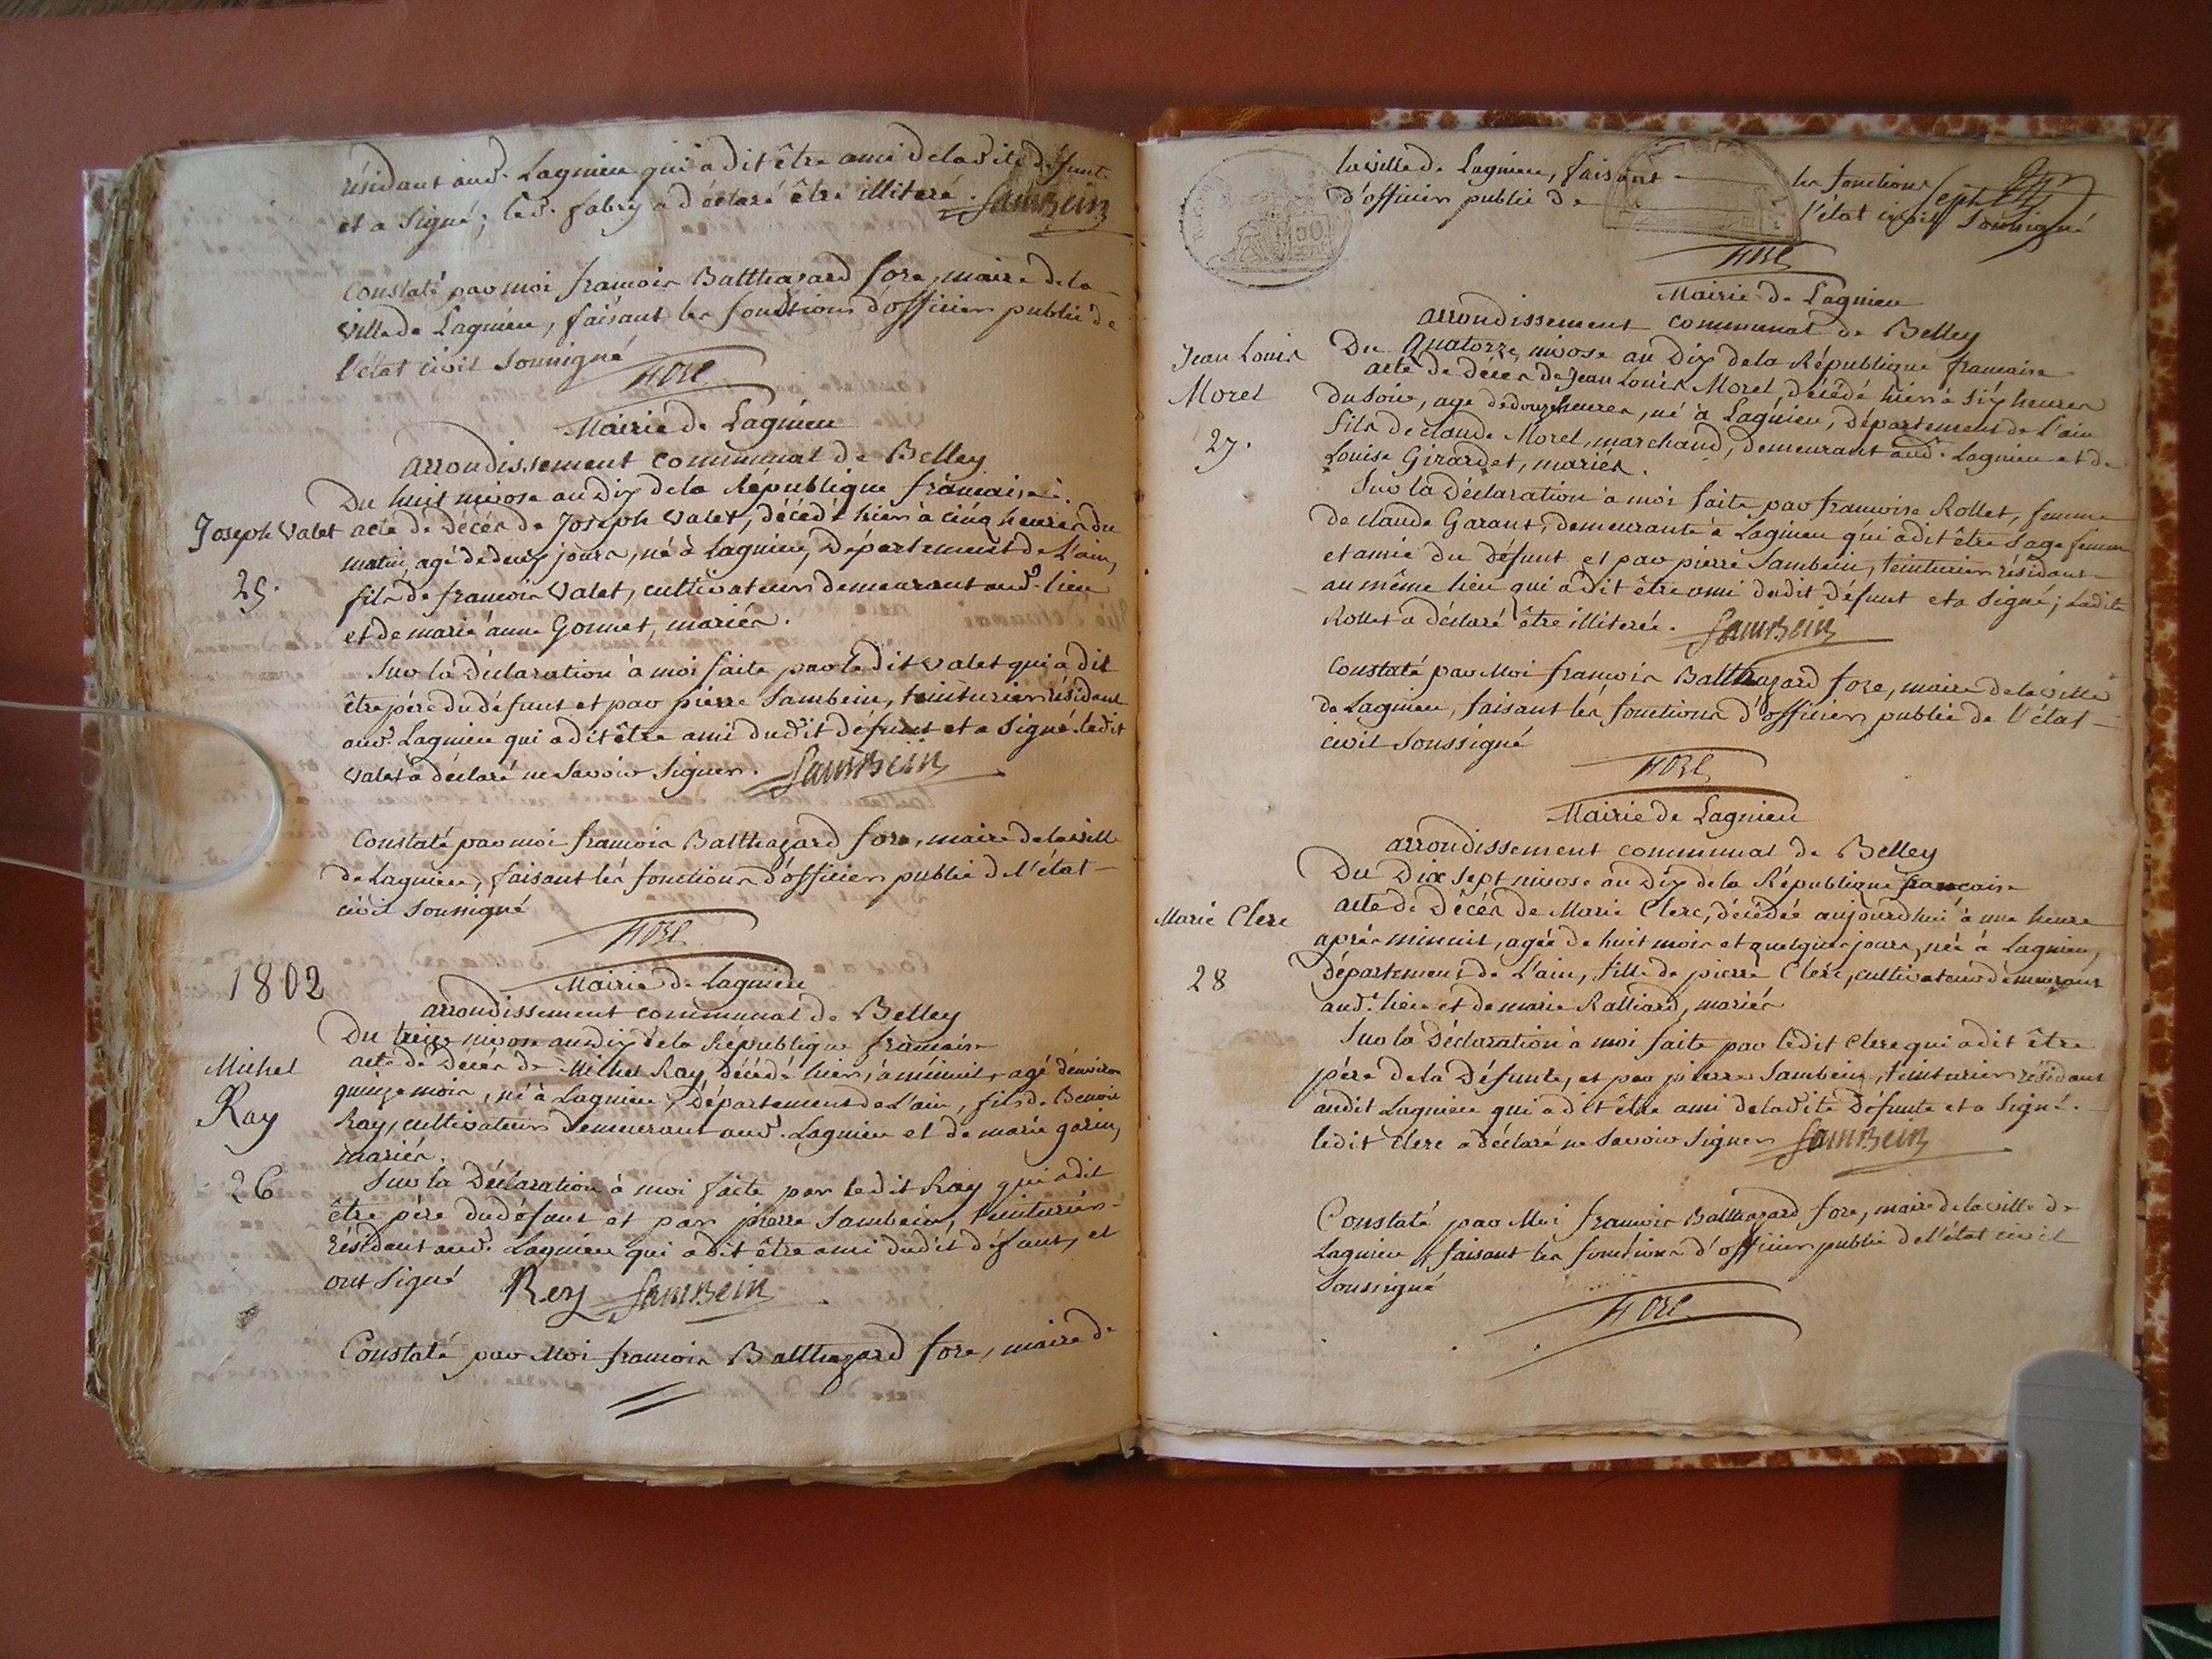 résidant aud. Lagnieu qui a dit être ami de la dite défunte
et a signé; led. fabry a déclaré être illiteré. Sambein
Constaté par moi francois Balthazard fore, maire de la
ville de Lagnieu, faisant les fonctions d'officier public de
l'état civil soussigné
FORE
Mairie de Lagnieu
arrondissement communal de Belley
Du huit nivose an Dix de la République francaise.
Joseph Valet
acte de Décés de Joseph Valet, décédé hier à cinq heures du
matin, agé de deux jours, né à Lagnieu, Département de L'ain,
25.
fils de francois Valet, cultivateur demeurant aud. lieu
et de marie anne Gonnet, mariés.
Sur la Déclaration à moi faite par le dit Valet qui a dit
être pére du défunt et par pierre Sambein, teinturier résidant
aud. Lagnieu qui a dit être ami dudit défunt et a signé. ledit
Valet a déclaré ne savoir signer. Sambein
Constaté par moi francois Balthazard fore, maire de la ville
de Lagnieu, faisant les fonctions d'officier public de l'état
civil soussigné
FORE
1802
Mairie de Lagnieu
arrondissement communal de Belley
Du treize nivose an dix de la République francaise
Michel
Ray
acte de Décés de Michel Ray décédé hier, à minuit, agé d'environ
quinze mois, né à Lagnieu, Département de L'ain, fils de Benoit
Ray, cultivateur demeurant aud. Lagnieu et de marie garin,
mariés.
26
Sur la Déclaration à moi faite par ledit Ray qui a dit
être pére du défunt et par pierre Sambein, teinturier
résidant aud. Lagnieu qui a dit être ami dudit défunt, et
ont signé Rey Sambein
Constaté par Moi francois Balthazard fore, maire de
la ville de Lagnieu, faisant les fonctions
d'officier public de l'état civil soussigné
Sept
FORE
Mairie de Lagnieu
arrondissement communal de Belley
Jean Louis
Morel
27.
Du Quatorze nivose an Dix de la République francaise
acte de décés de Jean Louis Morel, décédé hier à six heures
du soir, agé de douze heures, né à Lagnieu, Département de L'ain
fils de claude Morel, marchand, demeurant aud. Lagnieu et de
Louise Girardet, mariés.
Sur la Déclaration à moi faite par francoise Rollet, femme
de claude Garant, demeurante à Lagnieu qui a dit être sage femme
et amie du défunt et par pierre Sambein, teinturier résidant
au même lieu qui a dit être ami dudit défunt et a signé; ladite
Rollet a déclaré être illiterée. Sambein
Constaté par Moi francois Balthazard fore, maire de la ville
de Lagnieu, faisant les fonctions d'officier public de l'état
civil soussigné
FORE
Mairie de Lagnieu
arrondissement communal de Belley
Du Dix sept nivose an Dix de la République francaise
Marie Clerc
28
acte de Décés de Marie Clerc, décédée aujourdhui à une heure
aprés minuit, agée de huit mois et quelques jours, née à Lagnieu,
département de L'ain, fille de pierre Clerc, cultivateur demeurant
aud. lieu et de marie Ralliard, mariés
Sur la Déclaration à moi faite par ledit Clerc qui a dit être
pére de la Défunte, et par pierre Sambein, teinturier résidant
audit Lagnieu qui a dit être ami de ladite Défunte et a signé.
ledit Clerc a déclaré ne savoir signer Sambein
Constaté par Moi francois Balthazard fore, maire de la ville de
Lagnieu, faisant les fonctions d'officier public de l'état civil
soussigné
FORE